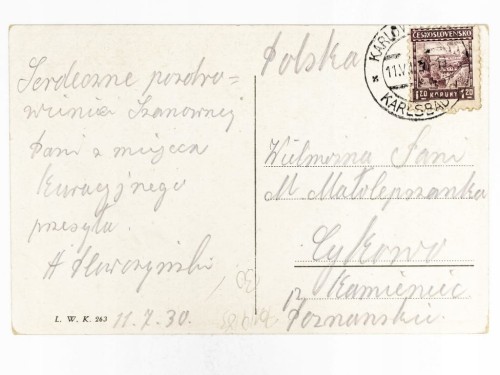 Serdeczne pozdro=
wienia Szanownej
Pani z miejsca
Kuracyjnego
przesyła.
11.7.30.
L. W. K. 263
Polska
KARLOVY
KARLSBAD
11.V
ČESKOSLOVENSKO
1.20 KORUNY 1.20
Wielmożna Pani
M. Małolepszanka
Cykowo
p. Kamieniec
Poznańskie.